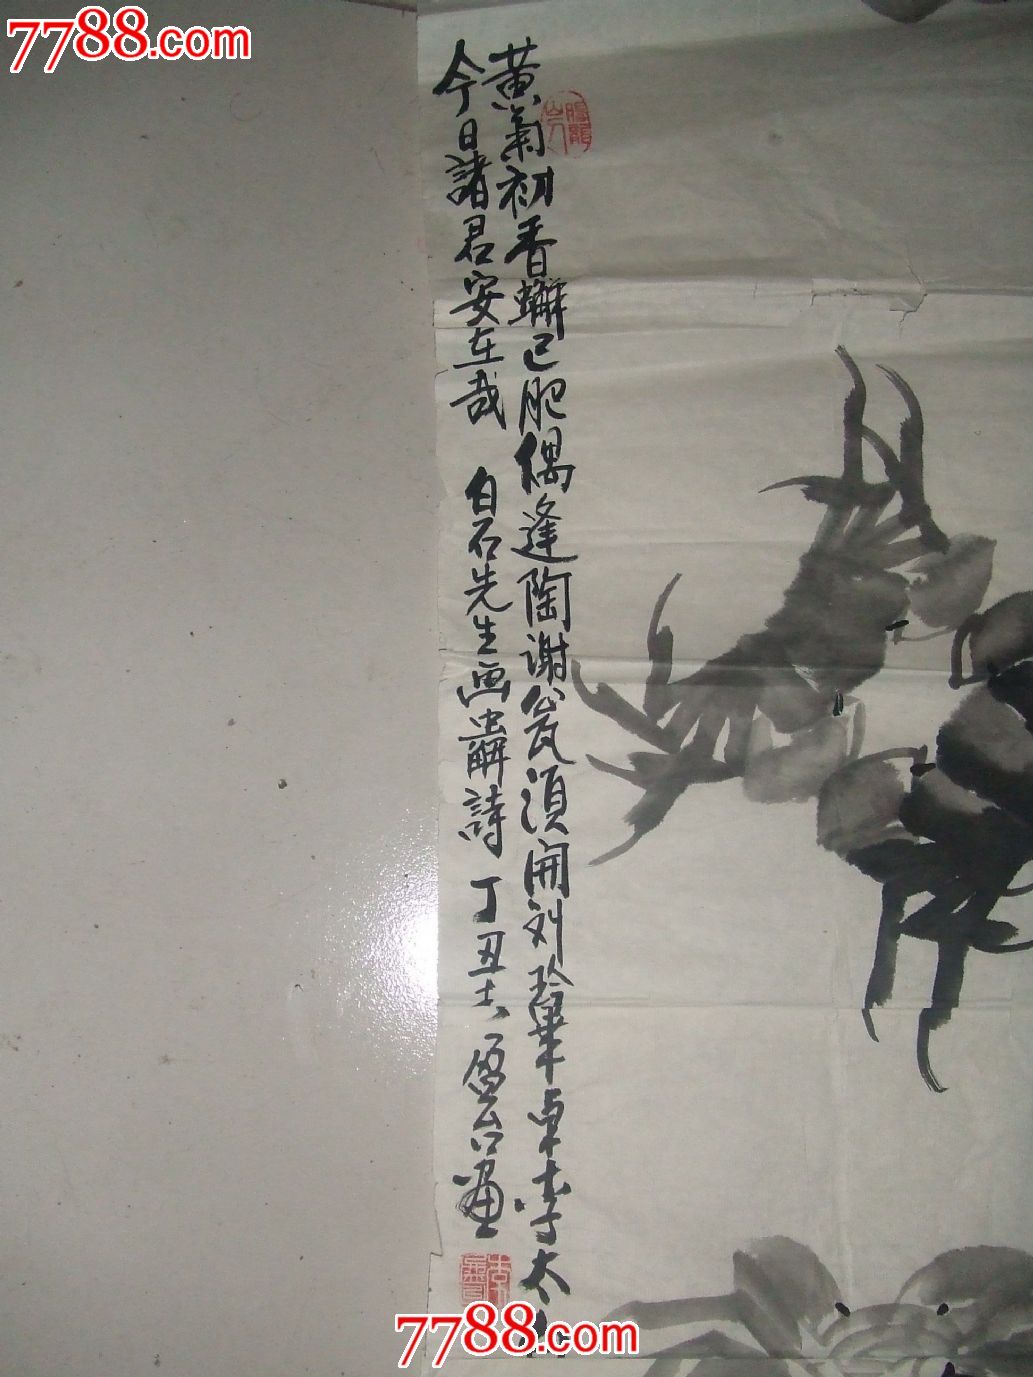 7788.com
黄菊初香蠏已肥偶逢陶谢瓮須開刘玲畢卓李太
今日諸君安在哉 白石先生画蠏詩 丁丑
画
7788.com